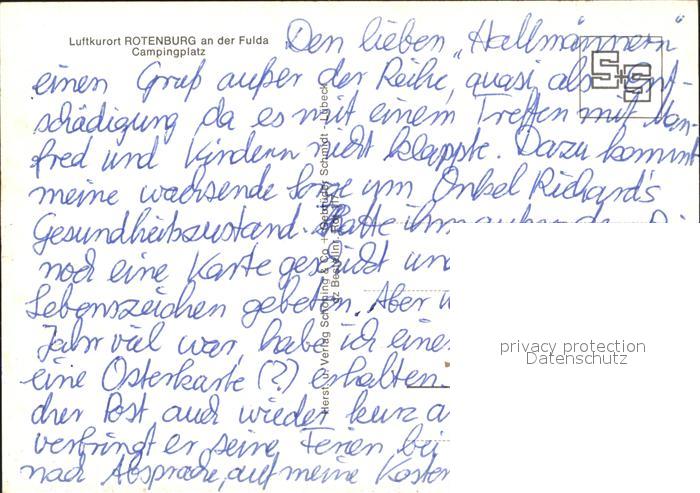 Luftkurort ROTENBURG an der Fulda
Campingplatz
Den lieben „Hallmännern"
einen Gruß außer der Reihe, quasi als Ent-
schädigung da es mit einem Treffen mit Man-
fred und Kindern nicht klappte. Dazu kommt
meine wachsende Sorge um Onkel Richard's
Gesundheitszustand. Hatte ihm außer der
noch eine Karte geschickt und
Lebenszeichen gebeten. Aber
Jahr viel war, habe ich eine
eine Osterkarte (?) erhalten.
der Post auch wieder kurz
verbringt er seine Ferien bei
nach Absprache, auf meine Kosten
Herst. u. Verlag Schöning & Co + Gebrüder Schmidt - Lübeck
S+S
privacy protection
Datenschutz